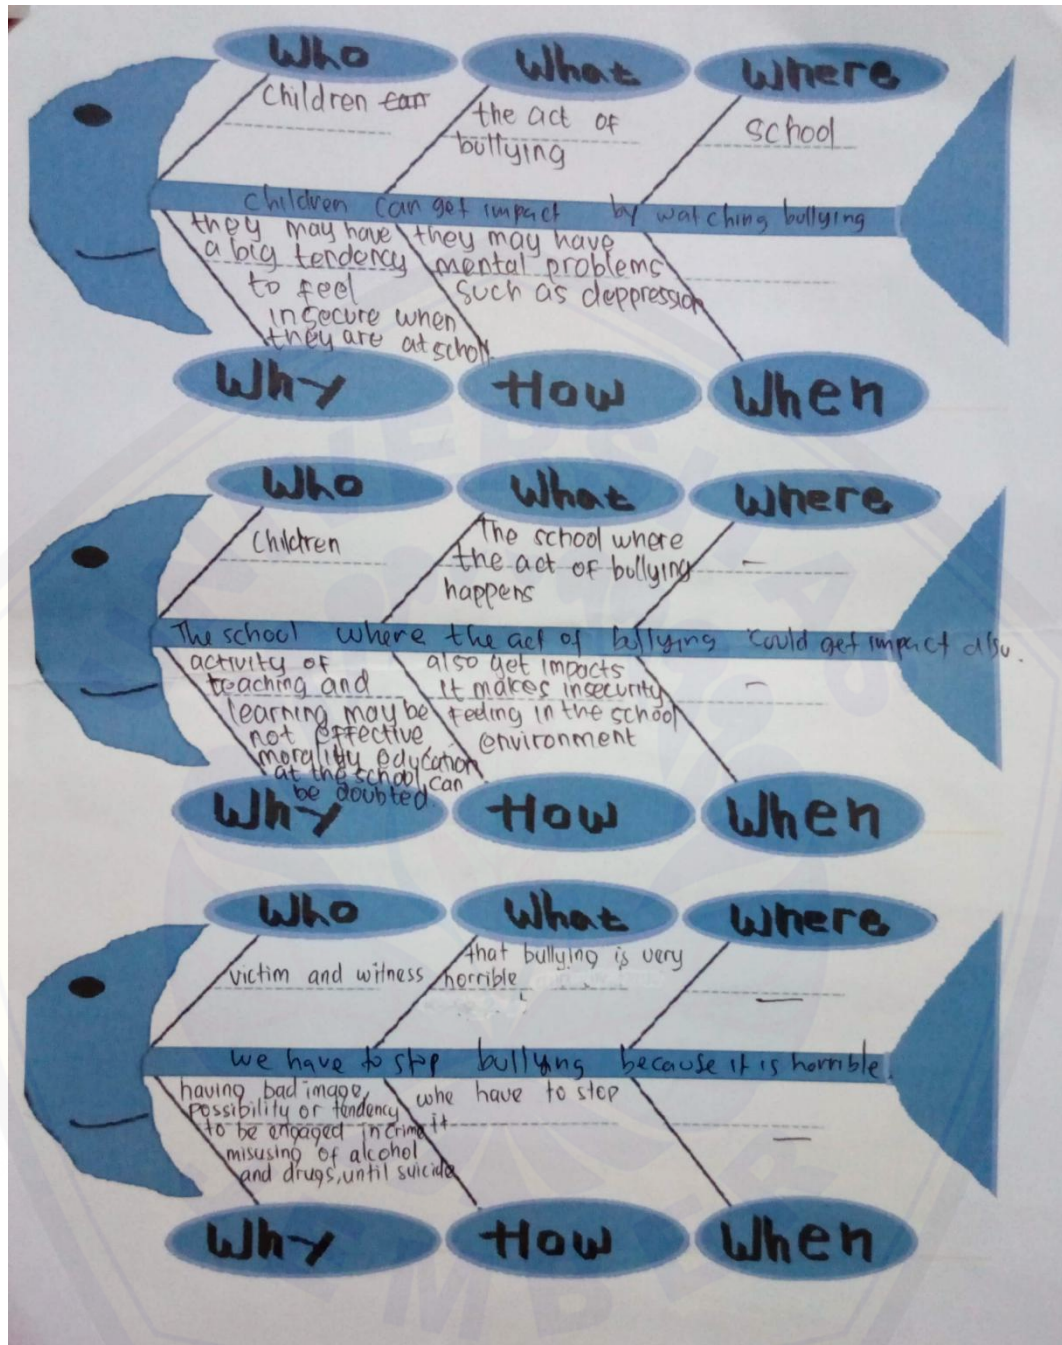 Who
What
Where
Children can
the act of
bullying
school
children can get impact by watching bullying
they may have
a big tendency
to feel
insecure when
they are at scholl.
they may have
mental problems
such as deppression
Why
How
When
Who
What
Where
Children
The school where
the act of bullying
happens
-
The school where the act of bullying could get impact also.
activity of
teaching and
learning may be
not effective
morality education
at the school can
be doubted
also get impacts
it makes insecurity
feeling in the school
environment
-
Why
How
When
Who
What
Where
victim and witness
that bullying is very
horrible
-
we have to stop bullying because it is horrible.
having bad image,
possibility or tendency
to be engaged in crime
misusing of alcohol
and drugs, until suicide
whe have to stop
it
-
Why
How
When